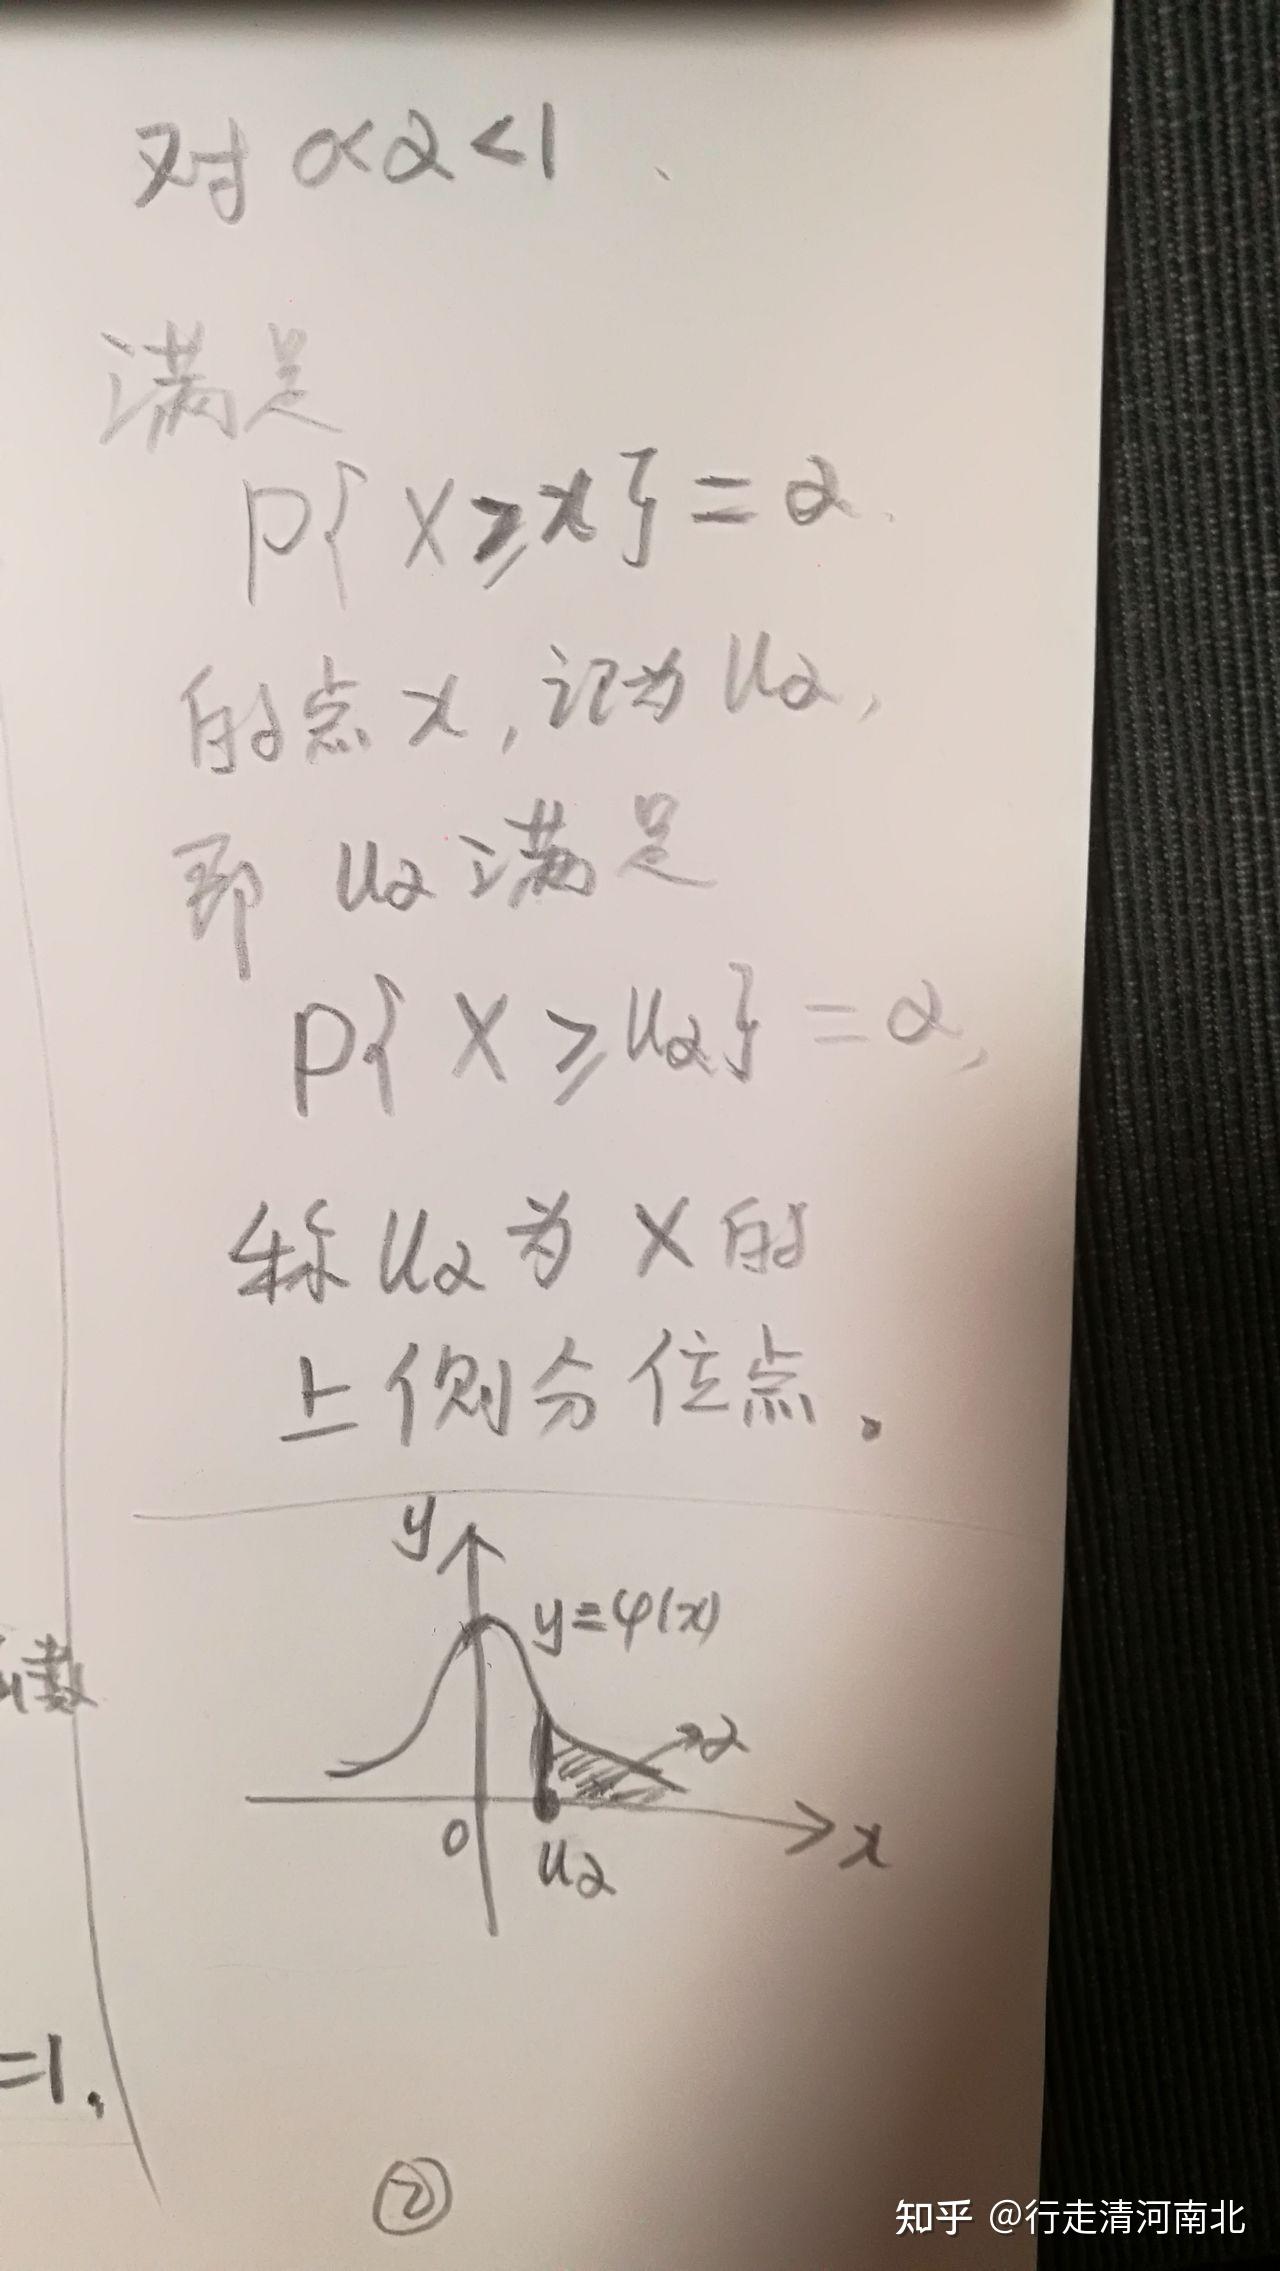 对 0<α<1
满足
P{X≥x}=α.
的点x,记为uα,
即 uα满足
P{X≥uα}=α,
称uα为X的
上侧分位点.
y
y=φ(x)
α
0
uα
x
函数
=1.
②
知乎 @行走清河南北